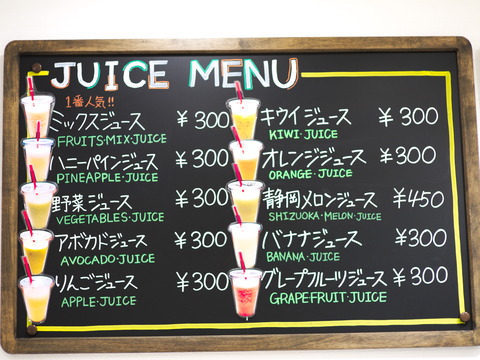 JUICE MENU
1番人気!!
ミックスジュース ¥300
FRUITS・MIX・JUICE
ハニーパインジュース ¥300
PINEAPPLE・JUICE
野菜ジュース ¥300
VEGETABLES・JUICE
アボカドジュース ¥300
AVOCADO・JUICE
りんごジュース ¥300
APPLE・JUICE
キウイジュース ¥300
KIWI・JUICE
オレンジジュース ¥300
ORANGE・JUICE
静岡メロンジュース ¥450
SHIZUOKA・MELON・JUICE
バナナジュース ¥300
BANANA・JUICE
グレープフルーツジュース ¥300
GRAPEFRUIT・JUICE